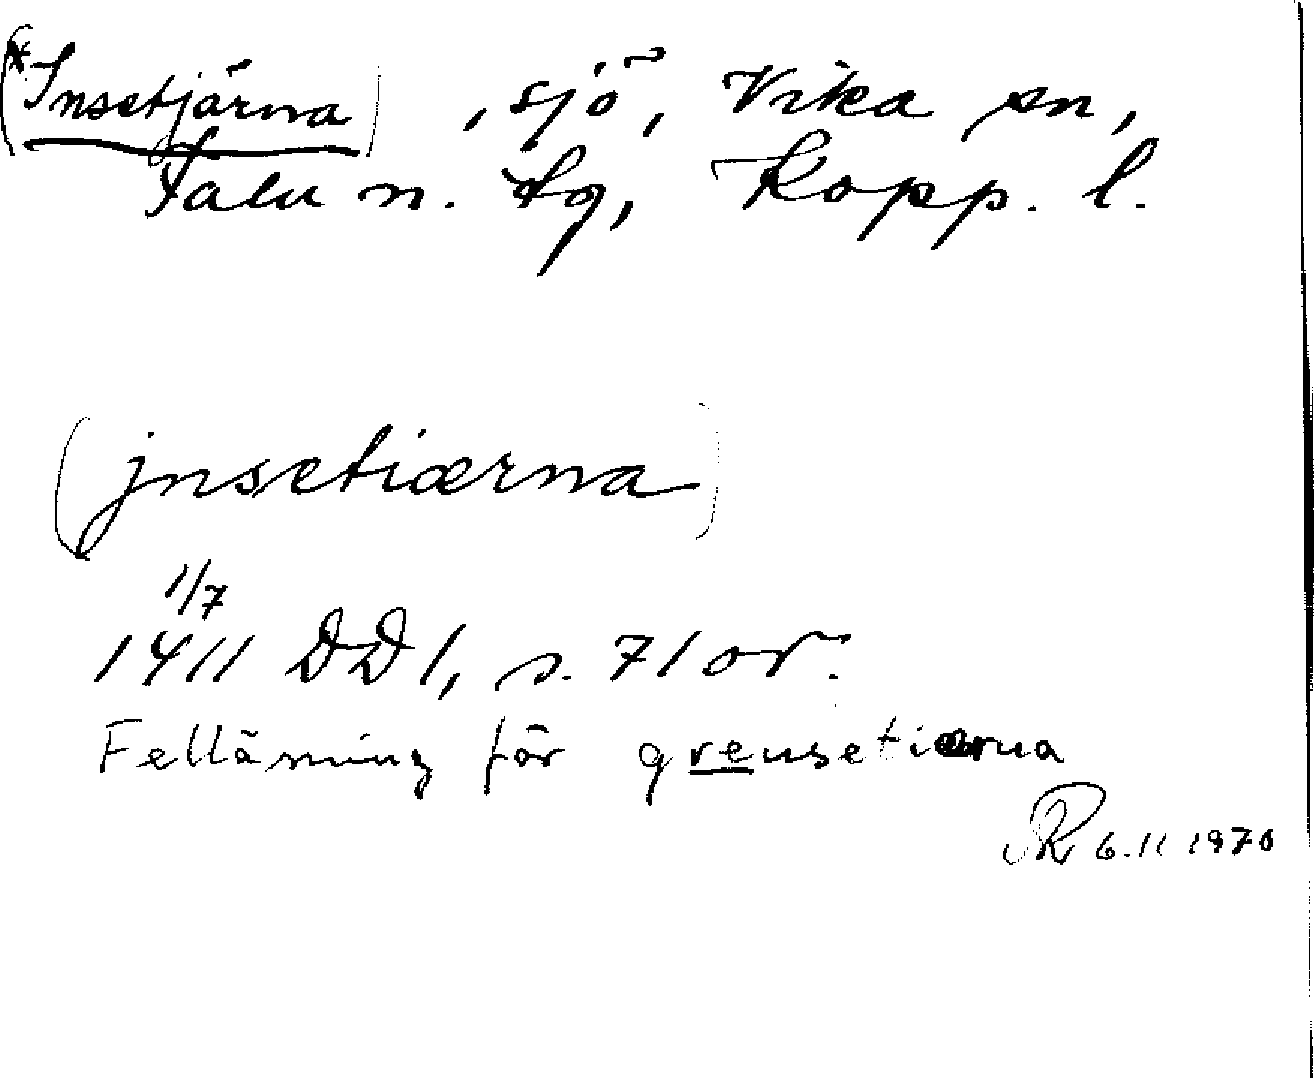 (*Insetjärna) , sjö, Vika sn,
Falu n. tg, Kopp. l.
(jnsetiærna)
1/7
1411 DD1, s. 71 or.
Felläsning för grensetiærna
6.11 1970